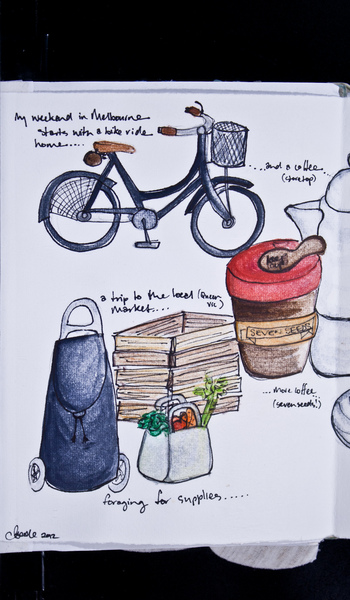 my weekend in Melbourne
starts with a bike ride
home.....
....and a coffee
(stovetop)
SEVEN SEEDS
a trip to the local (queen
vic)
market....
...more coffee
(seven seeds!)
foraging for supplies.....
2012